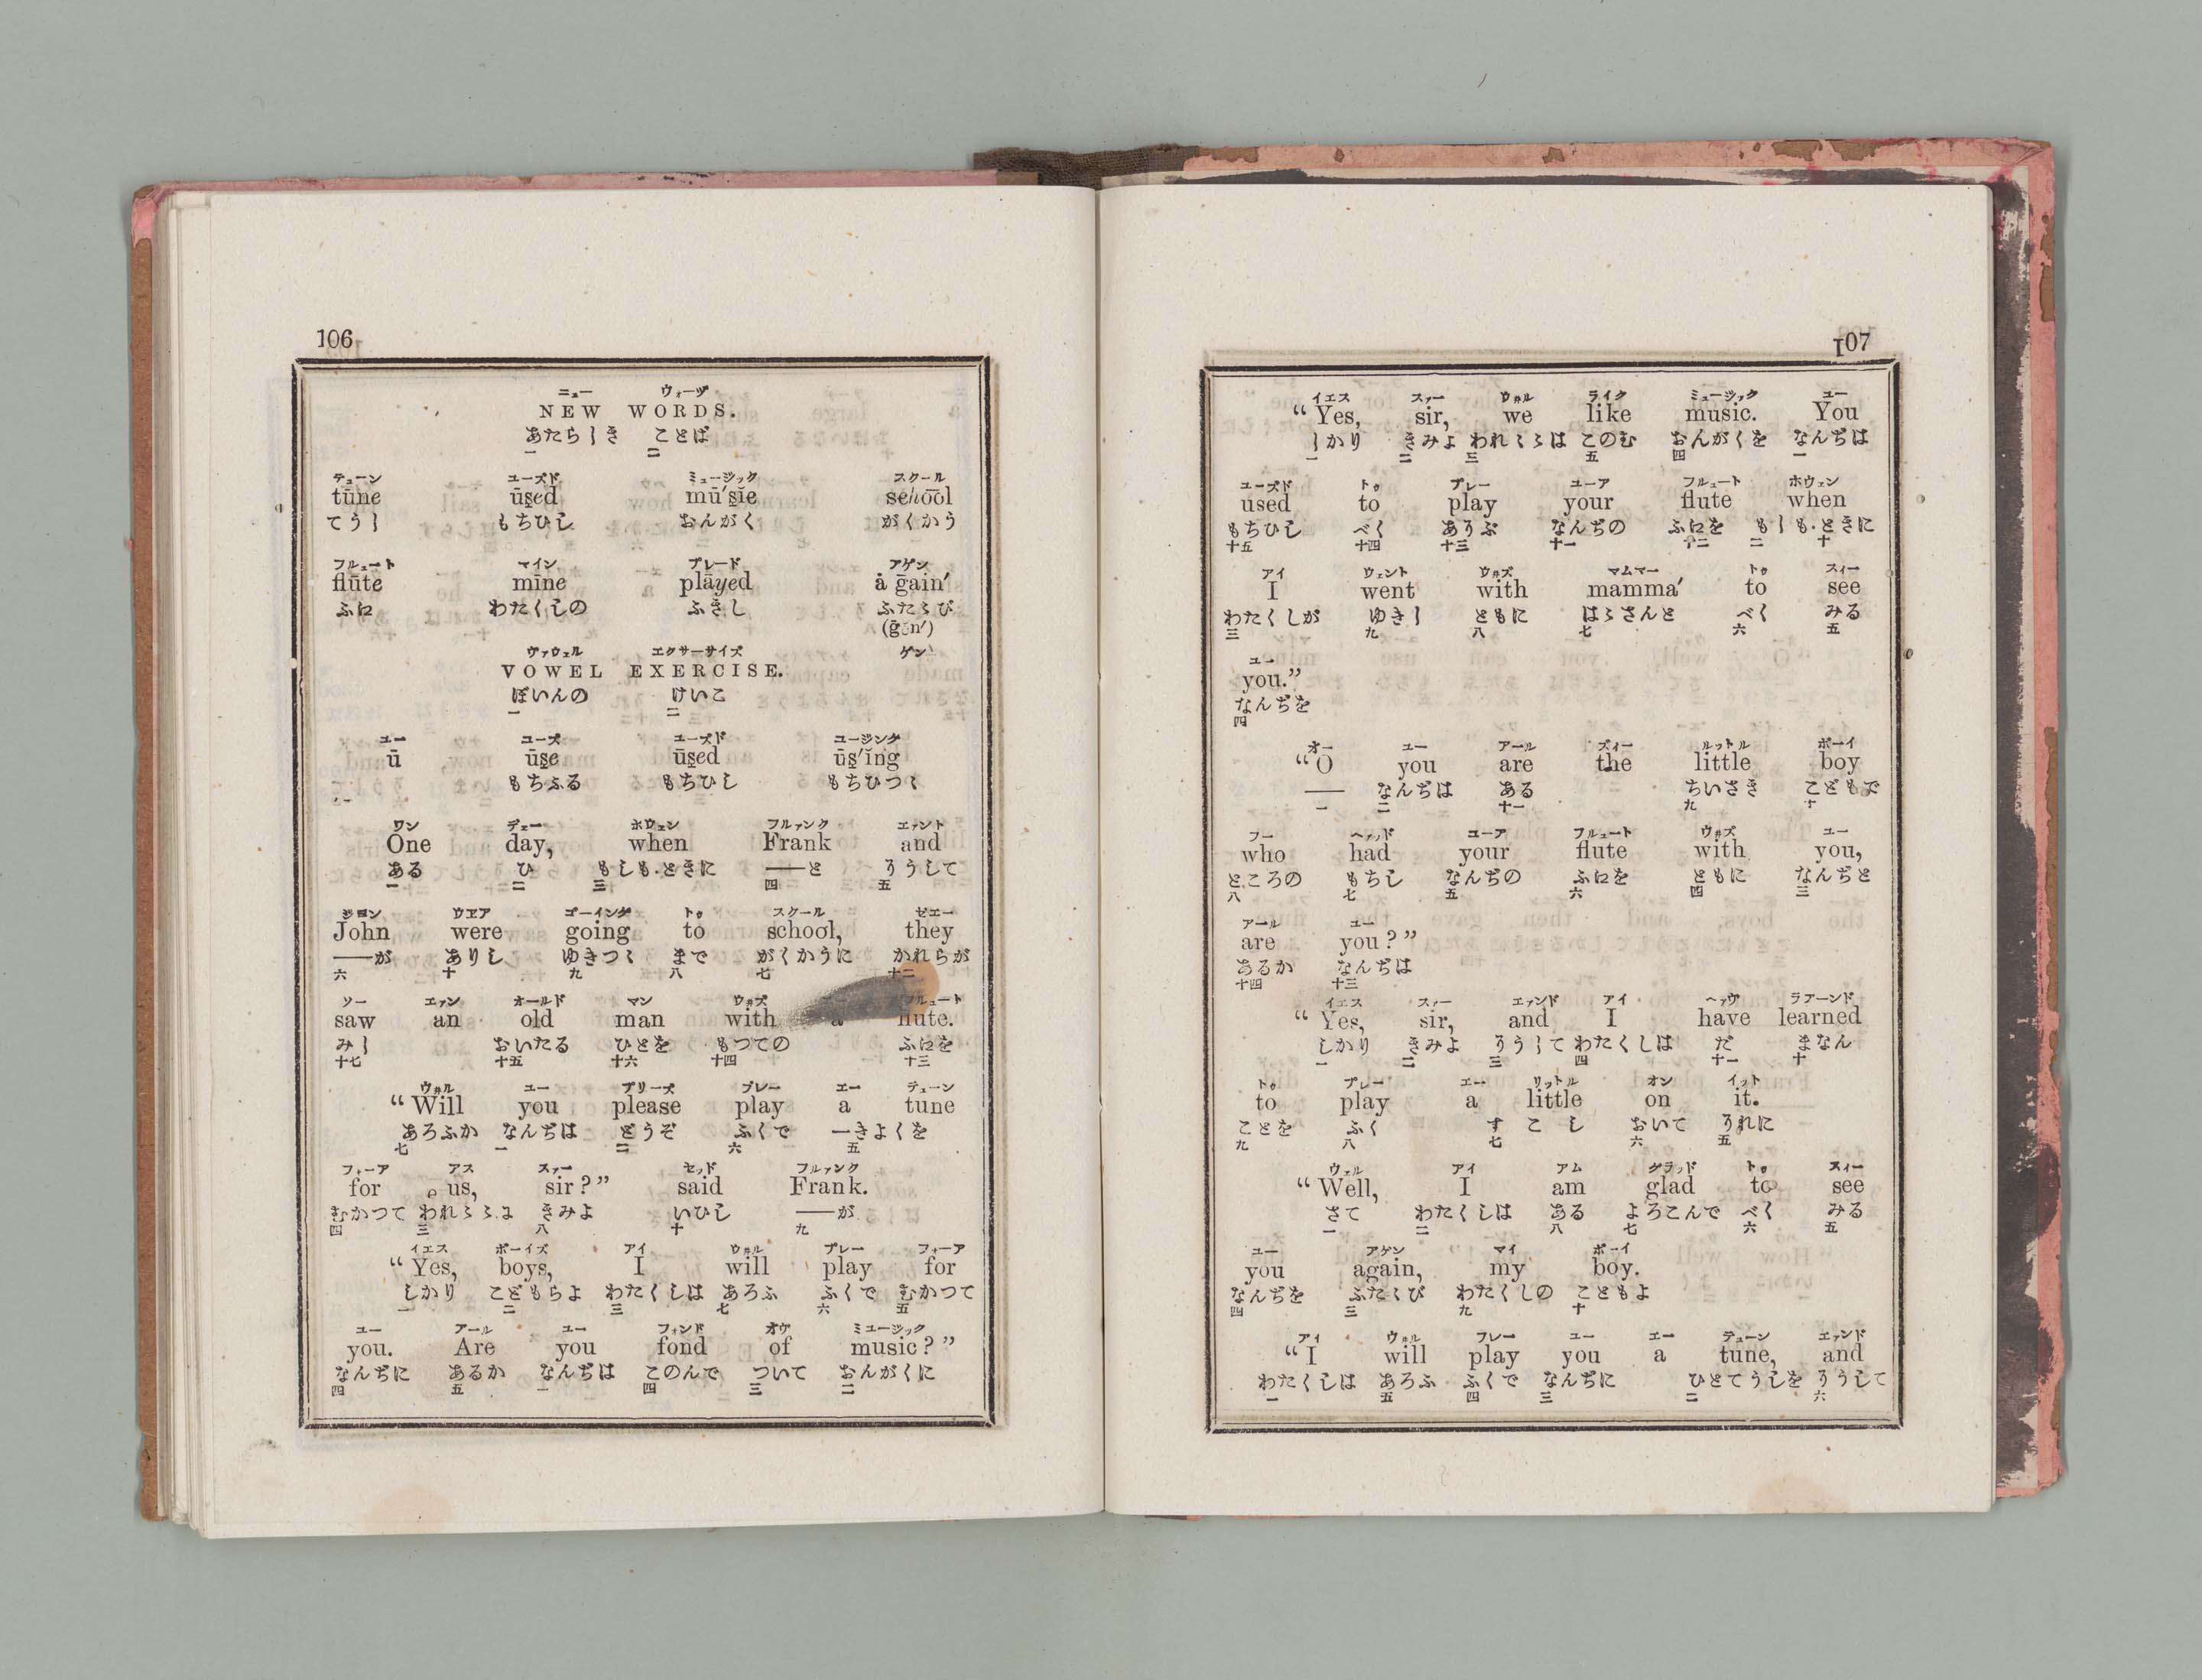 106
ニュー ウォーヅ
NEW WORDS.
あたらしき ことば
一 二
テューン ユーズド ミュージック スクール
tūne ūs̱ed mū′s̱ic sehōōl
てうし もちひし おんがく がくかう
フルュート マイン プレード アゲン
flūte mīne plāyed ȧ ḡain′
ふに わたくしの ふきし ふたゝび
(ḡĕn′)
ヴァウェル エクサーサイズ ゲン
VOWEL EXERCISE.
ぼいんの けいこ
一 二
ユー ユーズ ユーズド ユージング
ū ūs̱e ūs̱ed ūs̱′ĭng
もちふる もちひし もちひつゝ
ワン デェー ホウェン フルァンク エァント
One day, when Frank and
ある ひ もしも・ときに ──と そうして
一 二 三 四 五
ジヨン ウヱア ゴーイング トゥ スクール ゼエー
John were going to school, they
──が ありし ゆきつゝ まで がくかうに かれらが
六 十 九 八 七 十二
ソー エァン オールド マン ウ井ズ フルュート
saw an old man with a flute.
みし おいたる ひとを もつての ふにを
十七 十五 十六 十四 十三
ウ井ル ユー プリーズ プレー エー テューン
“ Will you please play a tune
あろふか なんぢは どうぞ ふくで 一きよくを
七 一 二 六 五
フォーア アス スァー セッド フルァンク
for us, sir ? ” said Frank.
むかつて われゝゝに きみよ いひし ──が
四 三 八 十 九
イエス ボーイズ アイ ウ井ル プレー フォーア
“ Yes, boys, I will play for
しかり こどもらよ わたくしは あろふ ふくで むかつて
一 二 三 七 六 五
ユー アール ユー フォンド オヴ ミユージック
you. Are you fond of music ? ”
なんぢに あるか なんぢは このんで ついて おんがくに
四 五 一 四 三 二
107
イエス スァー ウ井ル ライク ミュージック ユー
“ Yes, sir, we like music. You
しかり きみよ われゝゝは このむ おんがくを なんぢは
一 二 三 五 四 一
ユーズド トゥ プレー ユーア フルュート ホウェン
used to play your flute when
もちひし べく ありぷ なんぢの ふにを もしも・ときに
十五 十四 十三 十一 十二 二 十
アイ ウェント ウ井ズ マムマー トゥ スィー
I went with mamma′ to see
わたくしが ゆきし ともに はゝさんと べく みる
三 九 八 七 六 五
ユー
you.”
なんぢを
四
オー ユー アール ズィー ルットル ボーイ
“O you are the little boy
── なんぢは ある ちいさき こどもで
一 二 十一 九 十
フー ヘァッド ユーア フルュート ウ井ズ ユー
who had your flute with you,
ところの もちし なんぢの ふにを ともに なんぢと
八 七 五 六 四 三
アール ユー
are you ? ”
あるか なんぢは
十四 十三
イエス スァー エァンド アイ ヘァヴ ラアーンド
“ Yes, sir, and I have learned
しかり きみよ そうして わたくしは だ まなん
一 二 三 四 十一 十
トゥ プレー エー リットル オン イット
to play a little on it.
ことを ふく すこし おいて それに
九 八 七 六 五
ウェル アイ アム グラッド トゥ スィー
“ Well, I am glad to see
さて わたくしは ある よろこんで べく みる
一 二 八 七 六 五
ユー アゲン マイ ボーイ
you again, my boy.
なんぢを ふたゝび わたくしの こどもよ
四 三 九 十
アイ ウ井ル プレー ユー エー テューン エァンド
“ I will play you a tune, and
わたくしは あろふ ふくで なんぢに ひとてうしを そうして
一 五 四 三 二 六